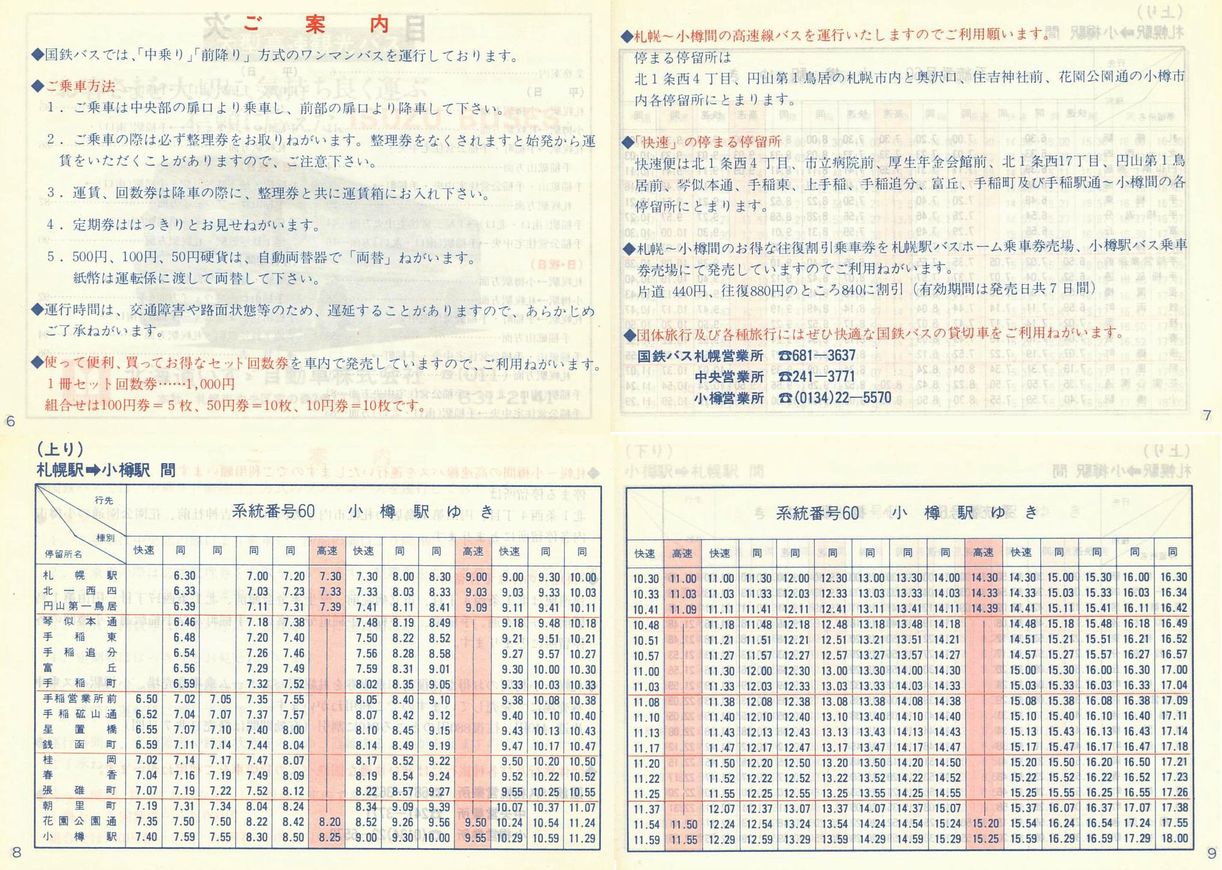 ご案内
◆国鉄バスでは、「中乗り」「前降り」方式のワンマンバスを運行しております。
◆ご乗車方法
1．ご乗車は中央部の扉口より乗車し、前部の扉口より降車して下さい。
2．ご乗車の際は必ず整理券をお取りねがいます。整理券をなくされますと始発から運
賃をいただくことがありますので、ご注意下さい。
3．運賃、回数券は降車の際に、整理券と共に運賃箱にお入れ下さい。
4．定期券ははっきりとお見せねがいます。
5．500円、100円、50円硬貨は、自動両替器で「両替」ねがいます。
紙幣は運転係に渡して両替して下さい。
◆運行時間は、交通障害や路面状態等のため、遅延することがありますので、あらかじめ
ご了承ねがいます。
◆使って便利、買ってお得なセット回数券を車内で発売していますので、ご利用ねがいます。
1冊セット回数券……1,000円
組合せは100円券＝5枚、50円券＝10枚、10円券＝10枚です。
6
◆札幌～小樽間の高速線バスを運行いたしますのでご利用願います。
停まる停留所は
北1条西4丁目、円山第1鳥居の札幌市内と奥沢口、住吉神社前、花園公園通の小樽市
内各停留所にとまります。
◆「快速」の停まる停留所
快速便は北1条西4丁目、市立病院前、厚生年金会館前、北1条西17丁目、円山第1鳥
居前、琴似本通、手稲東、上手稲、手稲追分、富丘、手稲町及び手稲駅通～小樽間の各
停留所にとまります。
◆札幌～小樽間のお得な往復割引乗車券を札幌駅バスホーム乗車券売場、小樽駅バス乗車
券売場にて発売していますのでご利用ねがいます。
片道 440円、往復880円のところ840に割引（有効期間は発売日共7日間）
◆団体旅行及び各種旅行にはぜひ快適な国鉄バスの貸切車をご利用ねがいます。
国鉄バス札幌営業所 ☎681―3637
中央営業所 ☎241―3771
小樽営業所 ☎(0134)22―5570
7
(上り)
札幌駅➡小樽駅 間
行先 種別 停留所名 系統番号60 小樽駅ゆき
快速 同 同 同 同 高速 快速 同 同 高速 快速 同 同
札幌駅 6.30 7.00 7.20 7.30 7.30 8.00 8.30 9.00 9.00 9.30 10.00
北一西四 6.33 7.03 7.23 7.33 7.33 8.03 8.33 9.03 9.03 9.33 10.03
円山第一鳥居 6.39 7.11 7.31 7.39 7.41 8.11 8.41 9.09 9.11 9.41 10.11
琴似本通 6.46 7.18 7.38 7.48 8.19 8.49 9.18 9.48 10.18
手稲東 6.48 7.20 7.40 7.50 8.22 8.52 9.21 9.51 10.21
手稲追分 6.54 7.26 7.46 7.56 8.28 8.58 9.27 9.57 10.27
富丘 6.56 7.29 7.49 7.59 8.31 9.01 9.30 10.00 10.30
手稲町 6.59 7.32 7.52 8.02 8.35 9.05 9.33 10.03 10.33
手稲営業所前 6.50 7.02 7.05 7.35 7.55 8.05 8.40 9.10 9.38 10.08 10.38
手稲砿山通 6.52 7.04 7.07 7.37 7.57 8.07 8.42 9.12 9.40 10.10 10.40
星置橋 6.55 7.07 7.10 7.40 8.00 8.10 8.45 9.15 9.43 10.13 10.43
銭函町 6.59 7.11 7.14 7.44 8.04 8.14 8.49 9.19 9.47 10.17 10.47
桂岡 7.02 7.14 7.17 7.47 8.07 8.17 8.52 9.22 9.50 10.20 10.50
春香 7.04 7.16 7.19 7.49 8.09 8.19 8.54 9.24 9.52 10.22 10.52
張碓町 7.07 7.19 7.22 7.52 8.12 8.22 8.57 9.27 9.55 10.25 10.55
朝里町 7.19 7.31 7.34 8.04 8.24 8.34 9.09 9.39 10.07 10.37 11.07
花園公園通 7.35 7.50 7.50 8.22 8.42 8.20 8.52 9.26 9.56 9.50 10.24 10.54 11.24
小樽駅 7.40 7.59 7.55 8.30 8.50 8.25 9.00 9.30 10.00 9.55 10.29 10.59 11.29
8
系統番号60 小樽駅ゆき
快速 高速 快速 同 同 同 同 同 同 高速 快速 同 同 同 同
10.30 11.00 11.00 11.30 12.00 12.30 13.00 13.30 14.00 14.30 14.30 15.00 15.30 16.00 16.30
10.33 11.03 11.03 11.33 12.03 12.33 13.03 13.33 14.03 14.33 14.33 15.03 15.33 16.03 16.34
10.41 11.09 11.11 11.41 12.11 12.41 13.11 13.41 14.11 14.39 14.41 15.11 15.41 16.11 16.42
10.48 11.18 11.48 12.18 12.48 13.18 13.48 14.18 14.48 15.18 15.48 16.18 16.49
10.51 11.21 11.51 12.21 12.51 13.21 13.51 14.21 14.51 15.21 15.51 16.21 16.52
10.57 11.27 11.57 12.27 12.57 13.27 13.57 14.27 14.57 15.27 15.57 16.27 16.57
11.00 11.30 12.00 12.30 13.00 13.30 14.00 14.30 15.00 15.30 16.00 16.30 17.00
11.03 11.33 12.03 12.33 13.03 13.33 14.03 14.33 15.03 15.33 16.03 16.33 17.04
11.08 11.38 12.08 12.38 13.08 13.38 14.08 14.38 15.08 15.38 16.08 16.38 17.09
11.10 11.40 12.10 12.40 13.10 13.40 14.10 14.40 15.10 15.40 16.10 16.40 17.11
11.13 11.43 12.13 12.43 13.13 13.43 14.13 14.43 15.13 15.43 16.13 16.43 17.14
11.17 11.47 12.17 12.47 13.17 13.47 14.17 14.47 15.17 15.47 16.17 16.47 17.18
11.20 11.50 12.20 12.50 13.20 13.50 14.20 14.50 15.20 15.50 16.20 16.50 17.21
11.22 11.52 12.22 12.52 13.22 13.52 14.22 14.52 15.22 15.52 16.22 16.52 17.23
11.25 11.55 12.25 12.55 13.25 13.55 14.25 14.55 15.25 15.55 16.25 16.55 17.26
11.37 12.07 12.37 13.07 13.37 14.07 14.37 15.07 15.37 16.07 16.37 17.07 17.38
11.54 11.50 12.24 12.54 13.24 13.54 14.24 14.54 15.24 15.20 15.54 16.24 16.54 17.24 17.55
11.59 11.55 12.29 12.59 13.29 13.59 14.29 14.59 15.29 15.25 15.59 16.29 16.59 17.29 18.00
9